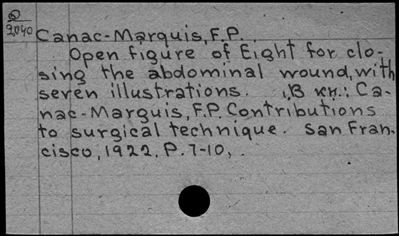 Q
9,040
Canac-Marquis, F.P.
Open figure of Eight for clo-
sing the abdominal wound, with
seven illustrations. ,В кн.: Ca-
nac-Marquis, F.P. Contributions
to surgical technique. San Fran-
cisco, 1922. P. 7-10.